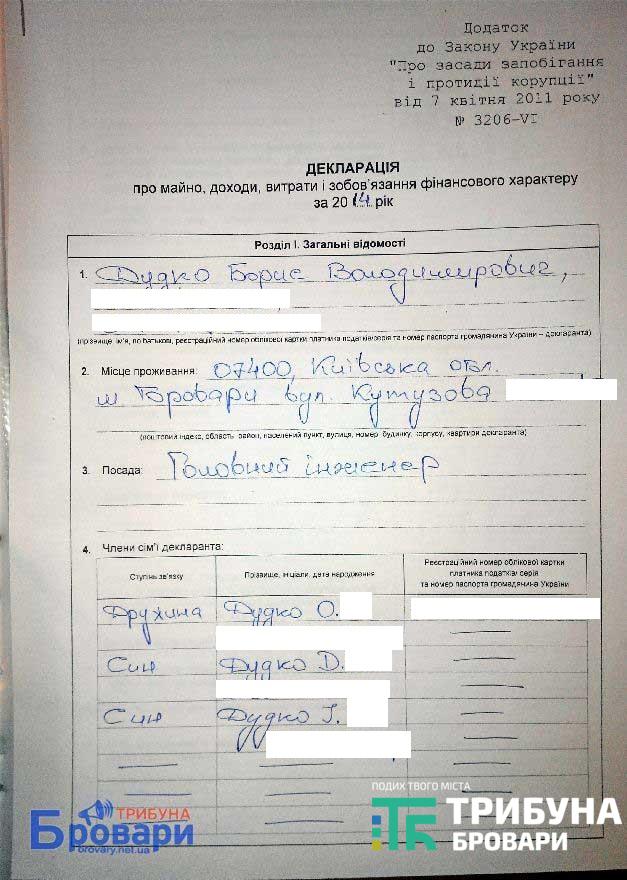 Додаток
до Закону України
"Про засади запобігання
і протидії корупції"
від 7 квітня 2011 року
№ 3206-VI
ДЕКЛАРАЦІЯ
про майно, доходи, витрати і зобов'язання фінансового характеру
за 2014 рік
Розділ І. Загальні відомості
1. Дудко Борис Володимирович,
(прізвище, ім'я, по батькові, реєстраційний номер облікової картки платника податків/серія та номер паспорта громадянина України – декларанта)
2. Місце проживання: 07400, Київська обл.
м Бровари вул. Кутузова
(поштовий індекс, область, район, населений пункт, вулиця, номер будинку, корпусу, квартири декларанта)
3. Посада: Головний інженер
4. Члени сім'ї декларанта:
Ступінь зв'язку Прізвище, ініціали, дата народження Реєстраційний номер облікової картки
платника податків/серія
та номер паспорта громадянина України
Дружина Дудко О.
Син Дудко Д.
Син Дудко І.
ПОДИХ ТВОГО МІСТА
ТРИБУНА
Бровари
brovary.net.ua
ТРИБУНА
БРОВАРИ